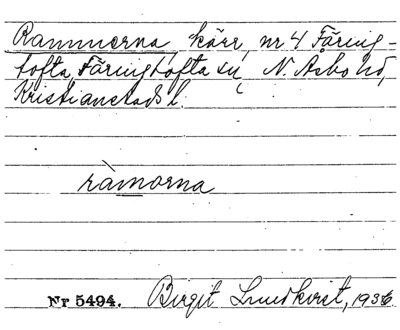 Rammorna, kärr, nr 4 Färing-
tofta, Färingtofta sn, N. Åsbo hd,
Kristianstads l.
ràmorna
Nr 5494. Birgit Lundkvist, 1936